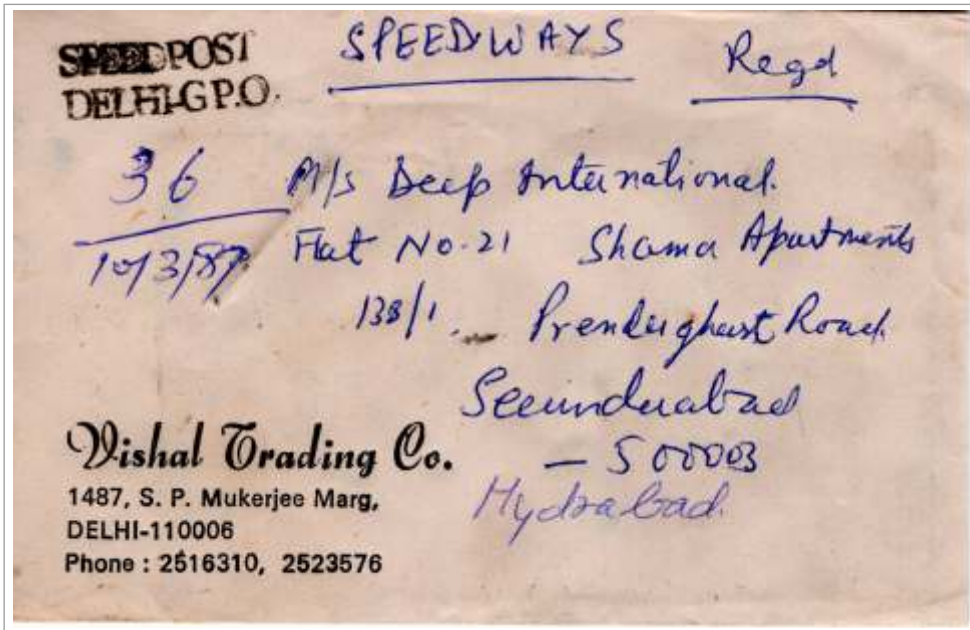 SPEED POST
DELHI-G P.O.
SPEEDWAYS
Regd
36
10/3/87
M/s Deep International.
Flat No. 21 Shama Apartments
138/1, Prenderghast Road
Secunderabad
— 500003
Hydrabad
Vishal Trading Co.
1487, S. P. Mukerjee Marg,
DELHI-110006
Phone : 2516310, 2523576